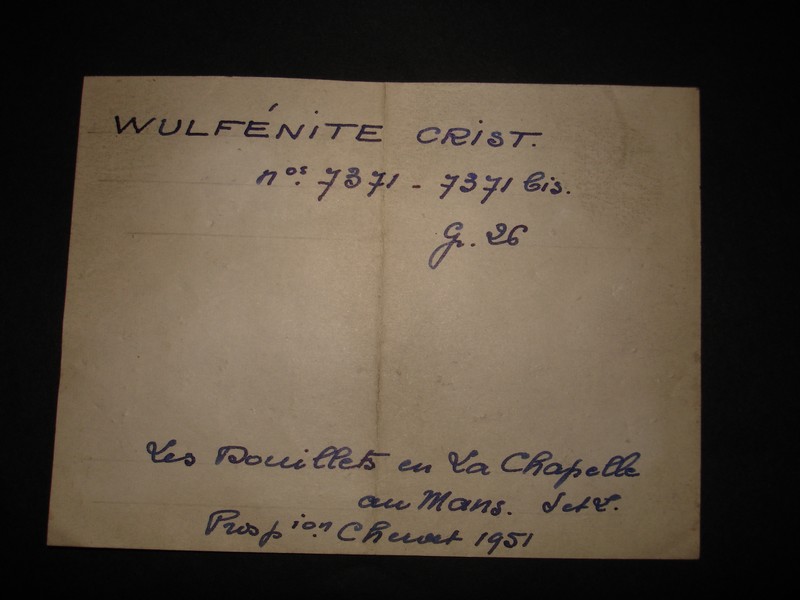 WULFÉNITE CRIST.
nos. 7371 - 7371 bis.
G. 26
Les Bouillets en La Chapelle
au Mans. S et L.
Prospion. 1951